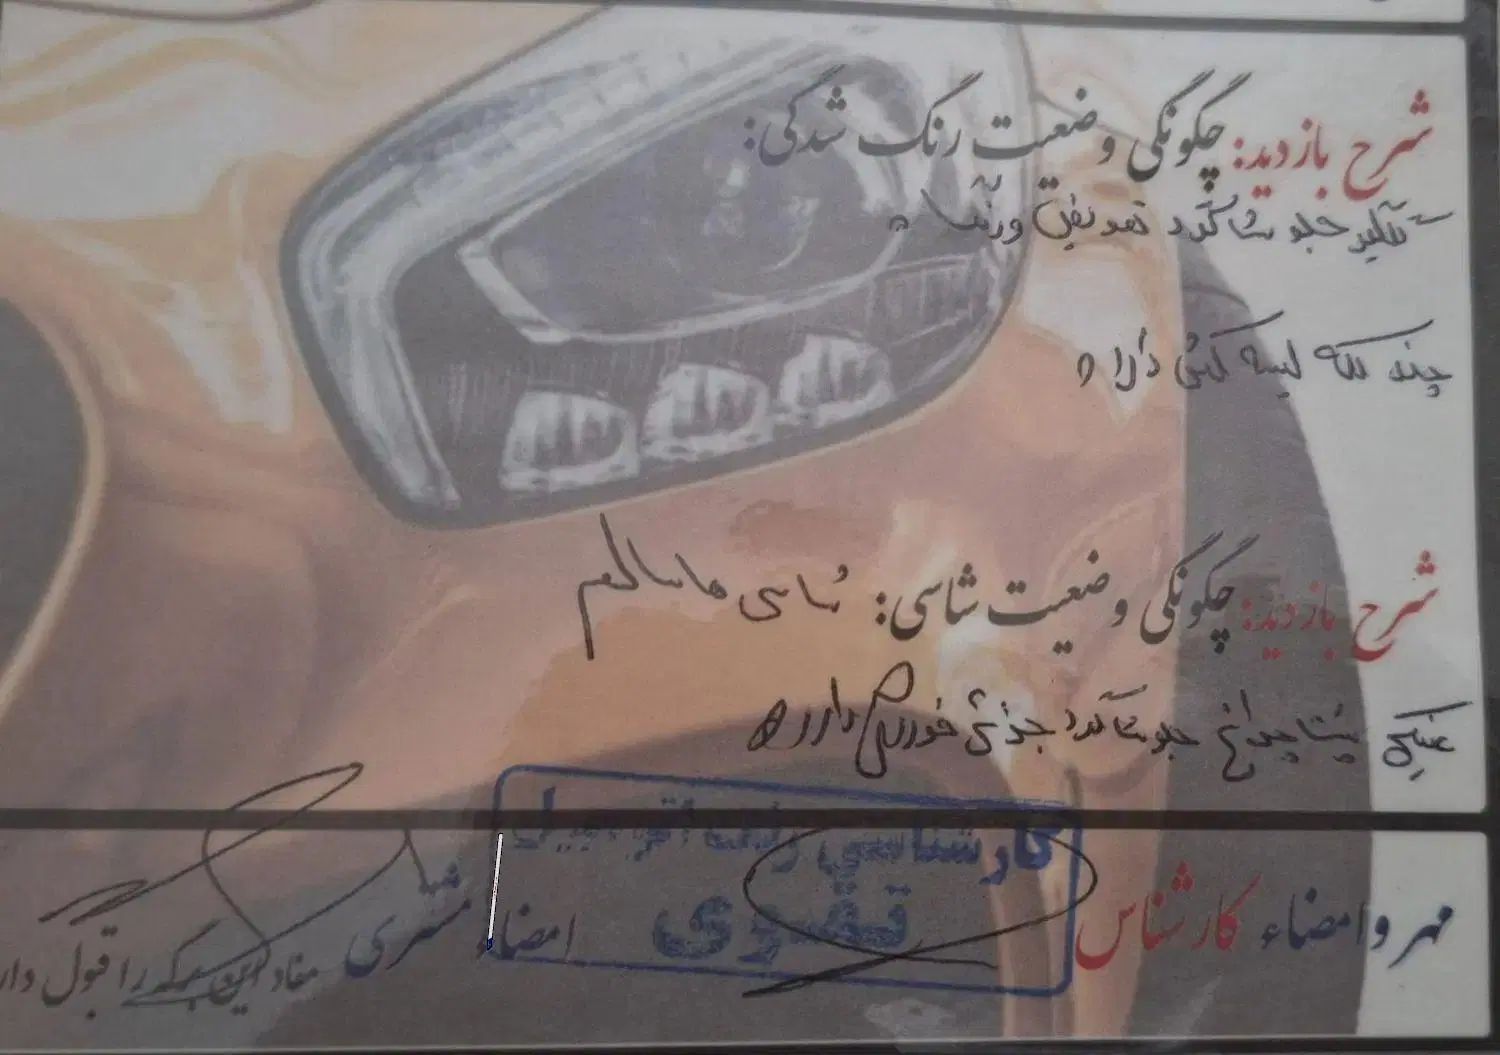 شرح بازدید: چگونگی وضعیت رنگ شدگی:
گلگیر جلو شاگرد تعویض و رنگ
چند لکه لیسه کشی دارد
شرح بازدید: چگونگی وضعیت شاسی: شاسی ها سالم
پشت چراغ جلو شاگرد جوش خوردگی دارد
مهر و امضاء کارشناس
کارشناسی رنگ اتومبیل
امضاء مشتری
مفاد این برگه را قبول دار